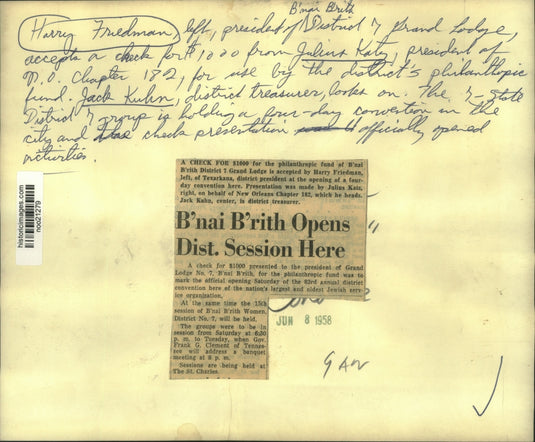 B'nai Brith
Harry Friedman, left, president of District 7 Grand Lodge,
accepts a check for $1000 from Julius Katz, president of
N.O. Chapter 182, for use by the district's philanthropic
fund. Jack Kuhn, district treasurer, looks on. The 7-State
District 7 group is holding a four-day convention in the
city and check presentation officially opened
activities.
A CHECK FOR $1000 for the philanthropic fund of B'nai
B'rith District 7 Grand Lodge is accepted by Harry Friedman,
left, of Texarkana, district president at the opening of a four-
day convention here. Presentation was made by Julius Katz,
right, on behalf of New Orleans Chapter 182, which he heads.
Jack Kuhn, center, is district treasurer.
B'nai B'rith Opens
Dist. Session Here
A check for $1000 presented to the president of Grand
Lodge No. 7, B'nai B'rith, for the philanthropic fund was to
mark the official opening Saturday of the 83rd annual district
convention here of the nation's largest and oldest Jewish serv-
ice organization.
At the same time the 15th
session of B'nai B'rith Women,
District No. 7, will be held.
The groups were to be in
session from Saturday at 6:30
p. m. to Tuesday, when Gov.
Frank G. Clement of Tennes-
see will address a banquet
meeting at 8 p. m.
Sessions are being held at
The St. Charles.
JUN 8 1958
historicimages.com
noo21279